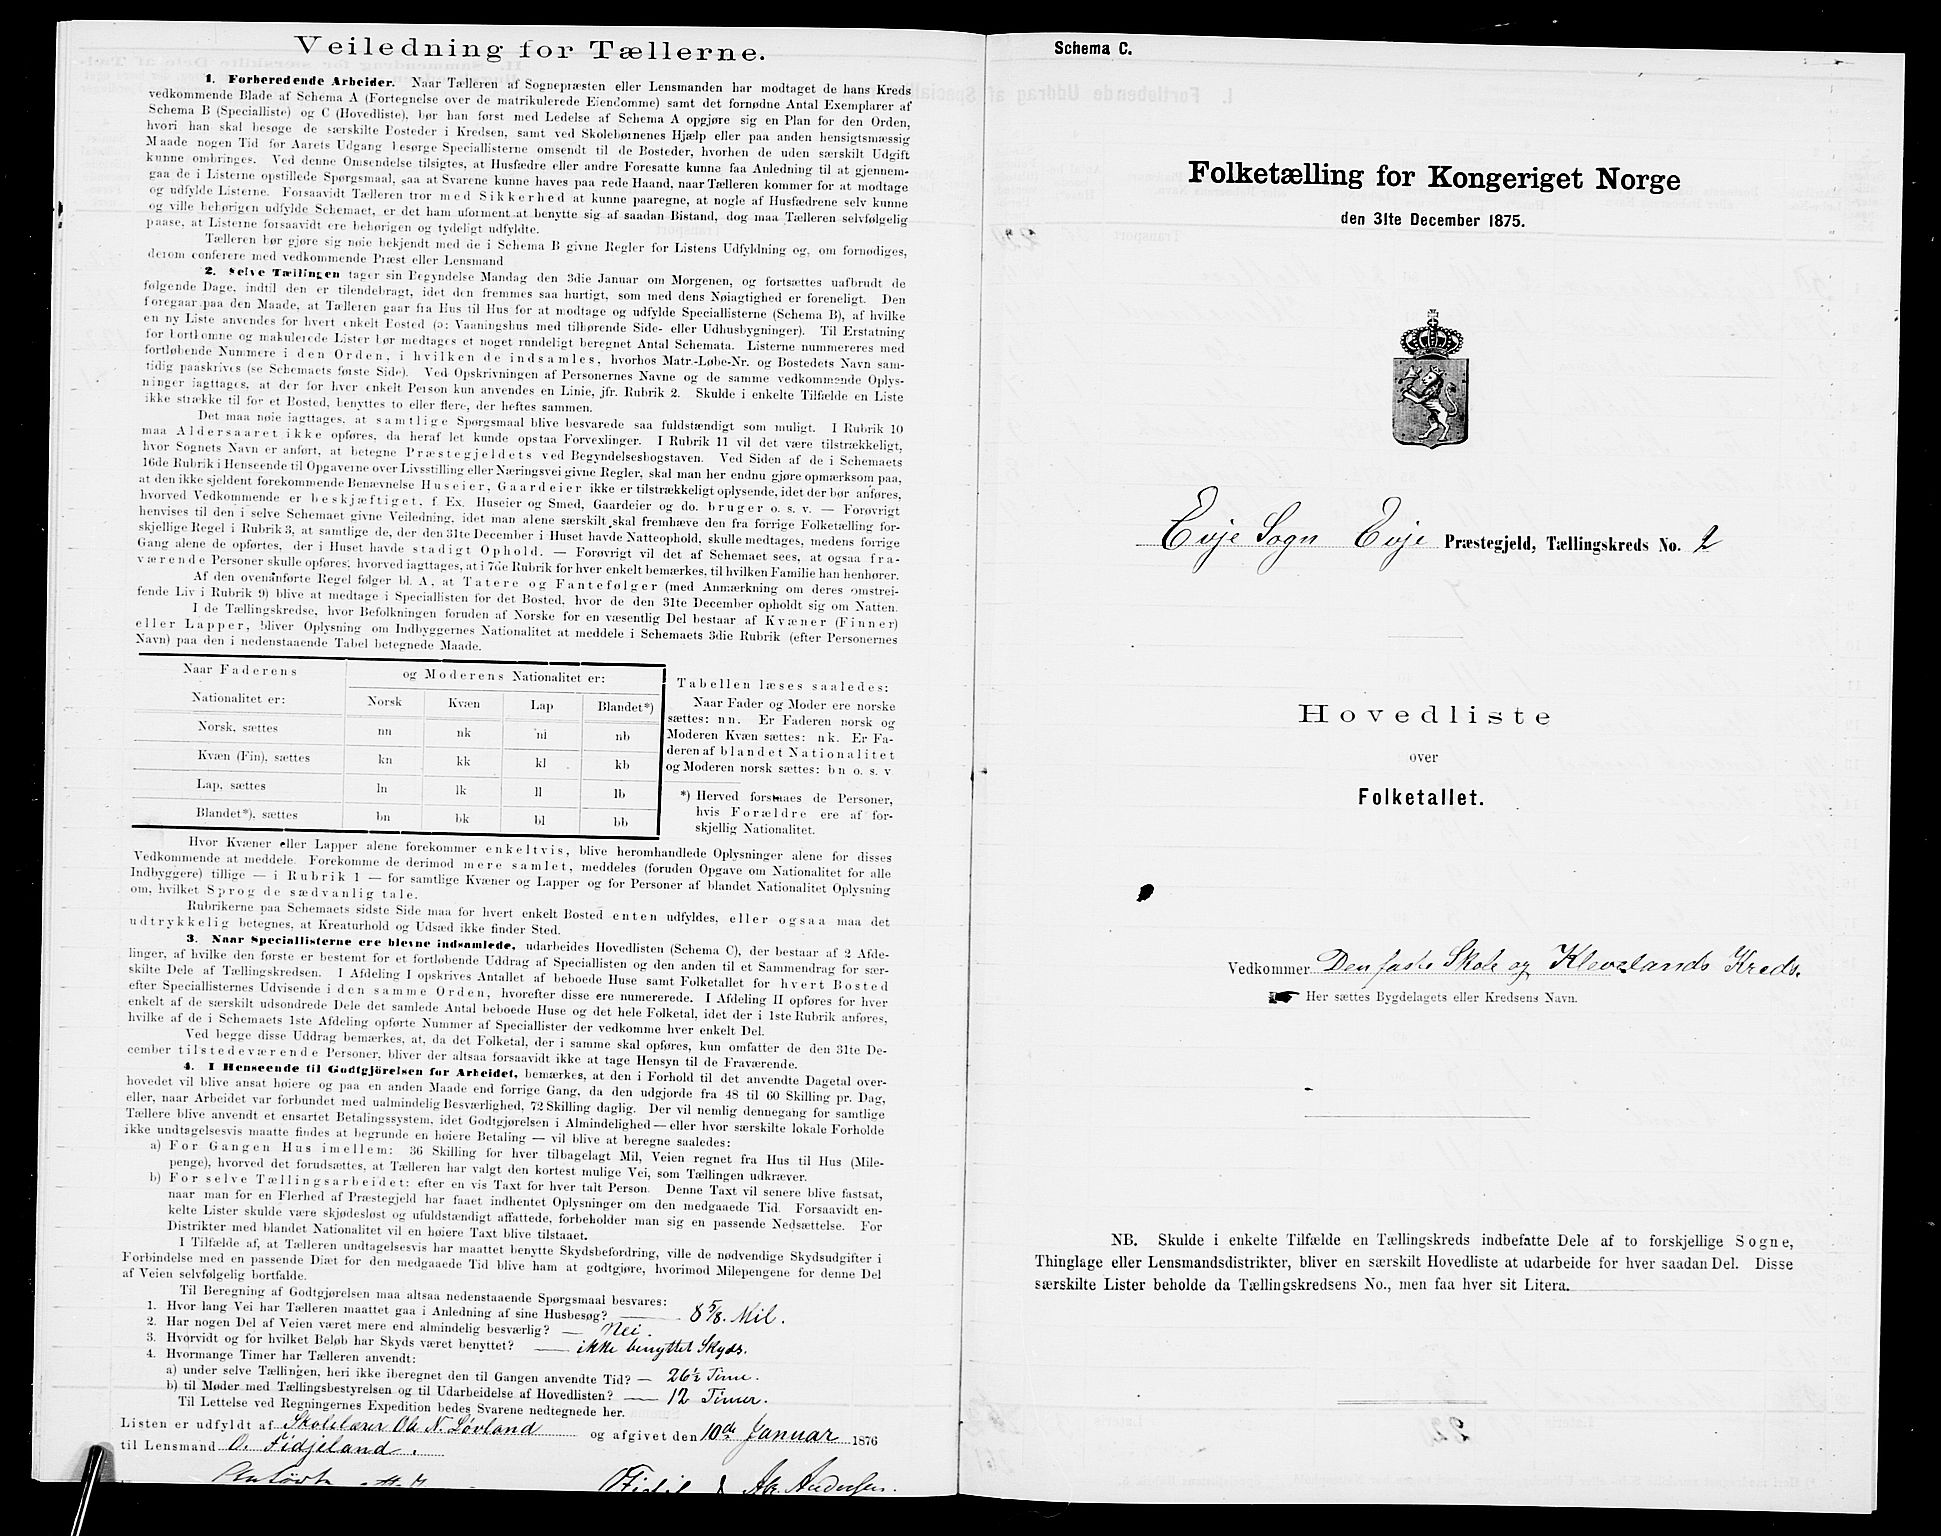 Veiledning for Tællerne.
1. Forberedende Arbeider. Naar Tælleren af Sognepræsten eller Lensmanden har modtaget de hans Kreds
vedkommende Blade af Schema A (Fortegnelse over de matrikulerede Eiendomme) samt det fornødne Antal Exemplarer af
Schema B (Specialliste) og C (Hovedliste), bør han først med Ledelse af Schema A opgjøre sig en Plan for den Orden,
hvori han skal besøge de særskilte Bosteder i Kredsen, samt ved Skolebørnenes Hjælp eller paa anden hensigtsmæssig
Maade nogen Tid før Aarets Udgang besørge Speciallisterne omsendt til de Bosteder, hvorhen de uden særskilt Udgift
kunne ombringes. Ved denne Omsendelse tilsigtes, at Husfædre eller andre Foresatte kunne faa Anledning til at gjennem-
gaa de i Listerne opstillede Spørgsmaal, saa at Svarene kunne haves paa rede Haand, naar Tælleren kommer for at modtage
og udfylde Listerne. Forsaavidt Tælleren tror med Sikkerhed at kunne paaregne, at nogle af Husfædrene selv kunne
og ville behørigen udfylde Schemaet, er det ham uforment at benytte sig af saadan Bistand, dog maa Tælleren selvfølgelig
paase, at Listerne forsaavidt ere behørigen og tydeligt udfyldte.
Tælleren bør gjøre sig nøie bekjendt med de i Schema B givne Regler for Listens Udfyldning og, om fornødiges,
derom conferere med vedkommende Præst eller Lensmand
2. Selve Tællingen tager sin Begyndelse Mandag den 3die Januar om Morgenen, og fortsættes uafbrudt de
følgende Dage, indtil den er tilendebragt, idet den fremmes saa hurtigt, som med dens Nøiagtighed er foreneligt. Den
foregaar paa den Maade, at Tælleren gaar fra Hus til Hus for at modtage og udfylde Speciallisterne (Schema B), af hvilke
en ny Liste anvendes for hvert enkelt Bosted (ɔ: Vaaningshus med tilhørende Side- eller Udhusbygninger). Til Erstatning
for bortkomne og makulerede Lister bør medtages et noget rundeligt beregnet Antal Schemata. Listerne nummereres med
fortløbende Nummere i den Orden, i hvilken de indsamles, hvorhos Matr.-Løbe-Nr. og Bostedets Navn sam-
tidig paaskrives (se Schemaets første Side). Ved Opskrivningen af Personernes Navne og de samme vedkommende Oplys-
ninger iagttages, at der for hver enkelt Person kun anvendes en Linie, jfr. Rubrik 2. Skulde i enkelte Tilfælde en Liste
ikke strække til for et Bosted, benyttes to eller flere, der heftes sammen.
Det maa nøie iagttages, at samtlige Spørgsmaal blive besvarede saa fuldstændigt som muligt. I Rubrik 10
maa Aldersaaret ikke opføres, da heraf let kunde opstaa Forvexlinger. I Rubrik 11 vil det være tilstrækkeligt,
hvor Sognets Navn er anført, at betegne Præstegjeldets ved Begyndelsesbogstaven. Ved Siden af de i Schemaets
16de Rubrik i Henseende til Opgaverne over Livsstilling eller Næringsvei givne Regler, skal man her endnu gjøre opmærksom paa,
at den ikke sjeldent forekommende Benævnelse Huseier, Gaardeier ikke er tilstrækkeligt oplysende, idet der bør anføres,
hvorved Vedkommende er beskjæftiget, f. Ex. Huseier og Smed, Gaardeier og do. bruger o. s. v. — Forøvrigt
henvises til den i selve Schemaet givne Veiledning, idet man alene særskilt skal fremhæve den fra forrige Folketælling for-
skjellige Regel i Rubrik 3, at samtlige de, der den 31te December i Huset havde Natteophold, skulle medtages, medens forrige
Gang alene de opførtes, der i Huset havde stadigt Ophold. — Forøvrigt vil det af Schemaet sees, at ogsaa fra-
værende Personer skulle opføres, hvorved iagttages, at i 7de Rubrik for hver enkelt bemærkes, til hvilken Familie han henhører.
Af den ovenanførte Regel følger bl. A. at Tatere og Fantefølger (med Anmærkning om deres omstrei-
fende Liv i Rubrik 9) blive at medtage i Speciallisten for det Bosted, hvor de den 31te December opholdt sig om Natten.
I de Tællingskredse, hvor Befolkningen foruden af Norske for en væsentlig Del bestaar af Kvæner (Finner)
eller Lapper, bliver Oplysning om Indbyggernes Nationalitet at meddele i Schemaets 3die Rubrik (efter Personernes
Navn) paa den i nedenstaaende Tabel betegnede Maade.
Naar Faderens Nationalitet er: og Moderens Nationalitet er:
Norsk Kvæn Lap Blandet*)
Norsk, sættes nn nk nl nb
Kvæn (Fin), sættes kn kk kl kb
Lap, sættes ln lk ll lb
Blandet*), sættes bn bk bl bb
Tabellen læses saaledes:
Naar Fader og Moder ere norske
sættes: nn. Er Faderen norsk og
Moderen Kvæn sættes: nk. Er Fa-
deren af blandet Nationalitet
og Moderen norsk sættes: bn o. s. v
*) Herved forstaaes de Personer,
hvis Forældre ere af for-
skjellig Nationalitet.
Hvor Kvæner eller Lapper alene forekommer enkeltvis, blive heromhandlede Oplysninger alene for disses
Vedkommende at meddele. Forekomme de derimod mere samlet, meddeles (foruden Opgave om Nationalitet for alle
Indbyggere) tillige — i Rubrik 1 — for samtlige Kvæner og Lapper og for Personer af blandet Nationalitet Oplysning
om, hvilket Sprog de sædvanlig tale.
Rubrikerne paa Schemaets sidste Side maa for hvert enkelt Bosted enten udfyldes, eller ogsaa maa det
udtrykkelig betegnes, at Kreaturhold og Udsæd ikke finder Sted.
3. Naar Speciallisterne ere blevne indsamlede, udarbeides Hovedlisten (Schema C), der bestaar af 2 Afde-
linger, af hvilke den første er bestemt for et fortløbende Uddrag af Speciallisten og den anden til et Sammendrag for sær-
skilte Dele af Tællingskredsen. I Afdeling I opskrives Antallet af beboede Huse samt Folketallet for hvert Bosted
efter Speciallisternes Udvisende i den samme Orden, hvorefter disse ere numererede. I Afdeling II opføres for hver
enkelt af de særskilt udsondrede Dele det samlede Antal beboede Huse og det hele Folketal, idet der i 1ste Rubrik anføres,
hvilke af de i Schemaets 1ste Afdeling opførte Nummer af Speciallister der vedkomme hver enkelt Del.
Ved begge disse Uddrag bemærkes, at, da det Folketal, der i samme skal opføres, kun omfatter de den 31te De-
cember tilstedeværende Personer, bliver der altsaa forsaavidt ikke at tage Hensyn til de Fraværende.
4. I Henseende til Godtgjörelsen for Arbeidet, bemærkes, at den i Forhold til det anvendte Dagetal over-
hovedet vil blive ansat høiere og paa en anden Maade end forrige Gang, da den udgjorde fra 48 til 60 Skilling pr. Dag,
eller, naar Arbeidet var forbundet med ualmindelig Besværlighed, 72 Skilling daglig. Der vil nemlig dennegang for samtlige
Tællere blive anvendt et ensartet Betalingssystem, idet Godtgjørelsen i Almindelighed — eller hvor særskilte lokale Forholde
ikke undtagelsesvis maatte findes at begrunde en høiere Betaling — vil blive at beregne saaledes:
a) For Gangen Hus imellem: 36 Skilling for hver tilbagelagt Mil, Veien regnet fra Hus til Hus (Mile-
penge), hvorved det forudsættes, at Tælleren har valgt den kortest mulige Vei, som Tællingen udkræver.
b) For selve Tællingsarbeidet: efter en vis Taxt for hver talt Person. Denne Taxt vil senere blive fastsat,
naar man for en Flerhed af Præstegjeld har faaet indhentet Oplysninger om den medgaaede Tid. Forsaavidt en-
kelte Lister skulde være skjødesløst og ufuldstændigt affattede, forbeholder man sig en passende Nedsættelse. For
Distrikter med blandet Nationalitet vil en høiere Taxt blive tilstaaet.
I Tilfælde af, at Tælleren undtagelsesvis har maattet benytte Skydsbefordring, ville de nødvendige Skydsudgifter i
Forbindelse med en passende Diæt for den medgaaede Tid blive ham at godtgjøre, hvorimod Milepengene for denne Del
af Veien selvfølgelig bortfalde.
Til Beregning af Godtgjørelsen maa altsaa nedenstaaende Spørgsmaal besvares:
1. Hvor lang Vei har Tælleren maattet gaa i Anledning af sine Husbesøg? 8 5/8. Mil.
2. Har nogen Del af Veien været mere end almindelig besværlig? — Nei.
3. Hvorvidt og for hvilket Beløb har Skyds været benyttet? — ikke benyttet Skyds.
4. Hvormange Timer har Tælleren anvendt:
a) under selve Tællingen, heri ikke iberegnet den til Gangen anvendte Tid? — 26½ Time.
b) til Møder med Tællingsbestyrelsen og til Udarbeidelse af Hovedlisten? — 12 Timer.
Til Lettelse ved Regningernes Expedition bedes Svarene nedtegnede her.
Listen er udfyldt af Skolelærer Ole N. Løvland og afgivet den 10de Januar 1876
til Lensmand O. Fidjeland.
Andersen.
Schema C.
Folketælling for Kongeriget Norge
den 31te December 1875.
Evje Sogn Evje Præstegjeld, Tællingskreds No. 2
Hovedliste
over
Folketallet.
Vedkommer Den faste Skole og Klevelands Kreds.
Her sættes Bygdelagets eller Kredsens Navn.
NB. Skulde i enkelte Tilfælde en Tællingskreds indbefatte Dele af to forskjellige Sogne,
Thinglage eller Lensmandsdistrikter, bliver en særskilt Hovedliste at udarbeide for hver saadan Del. Disse
særskilte Lister beholde da Tællingskredsens No., men faa hver sit Litera.